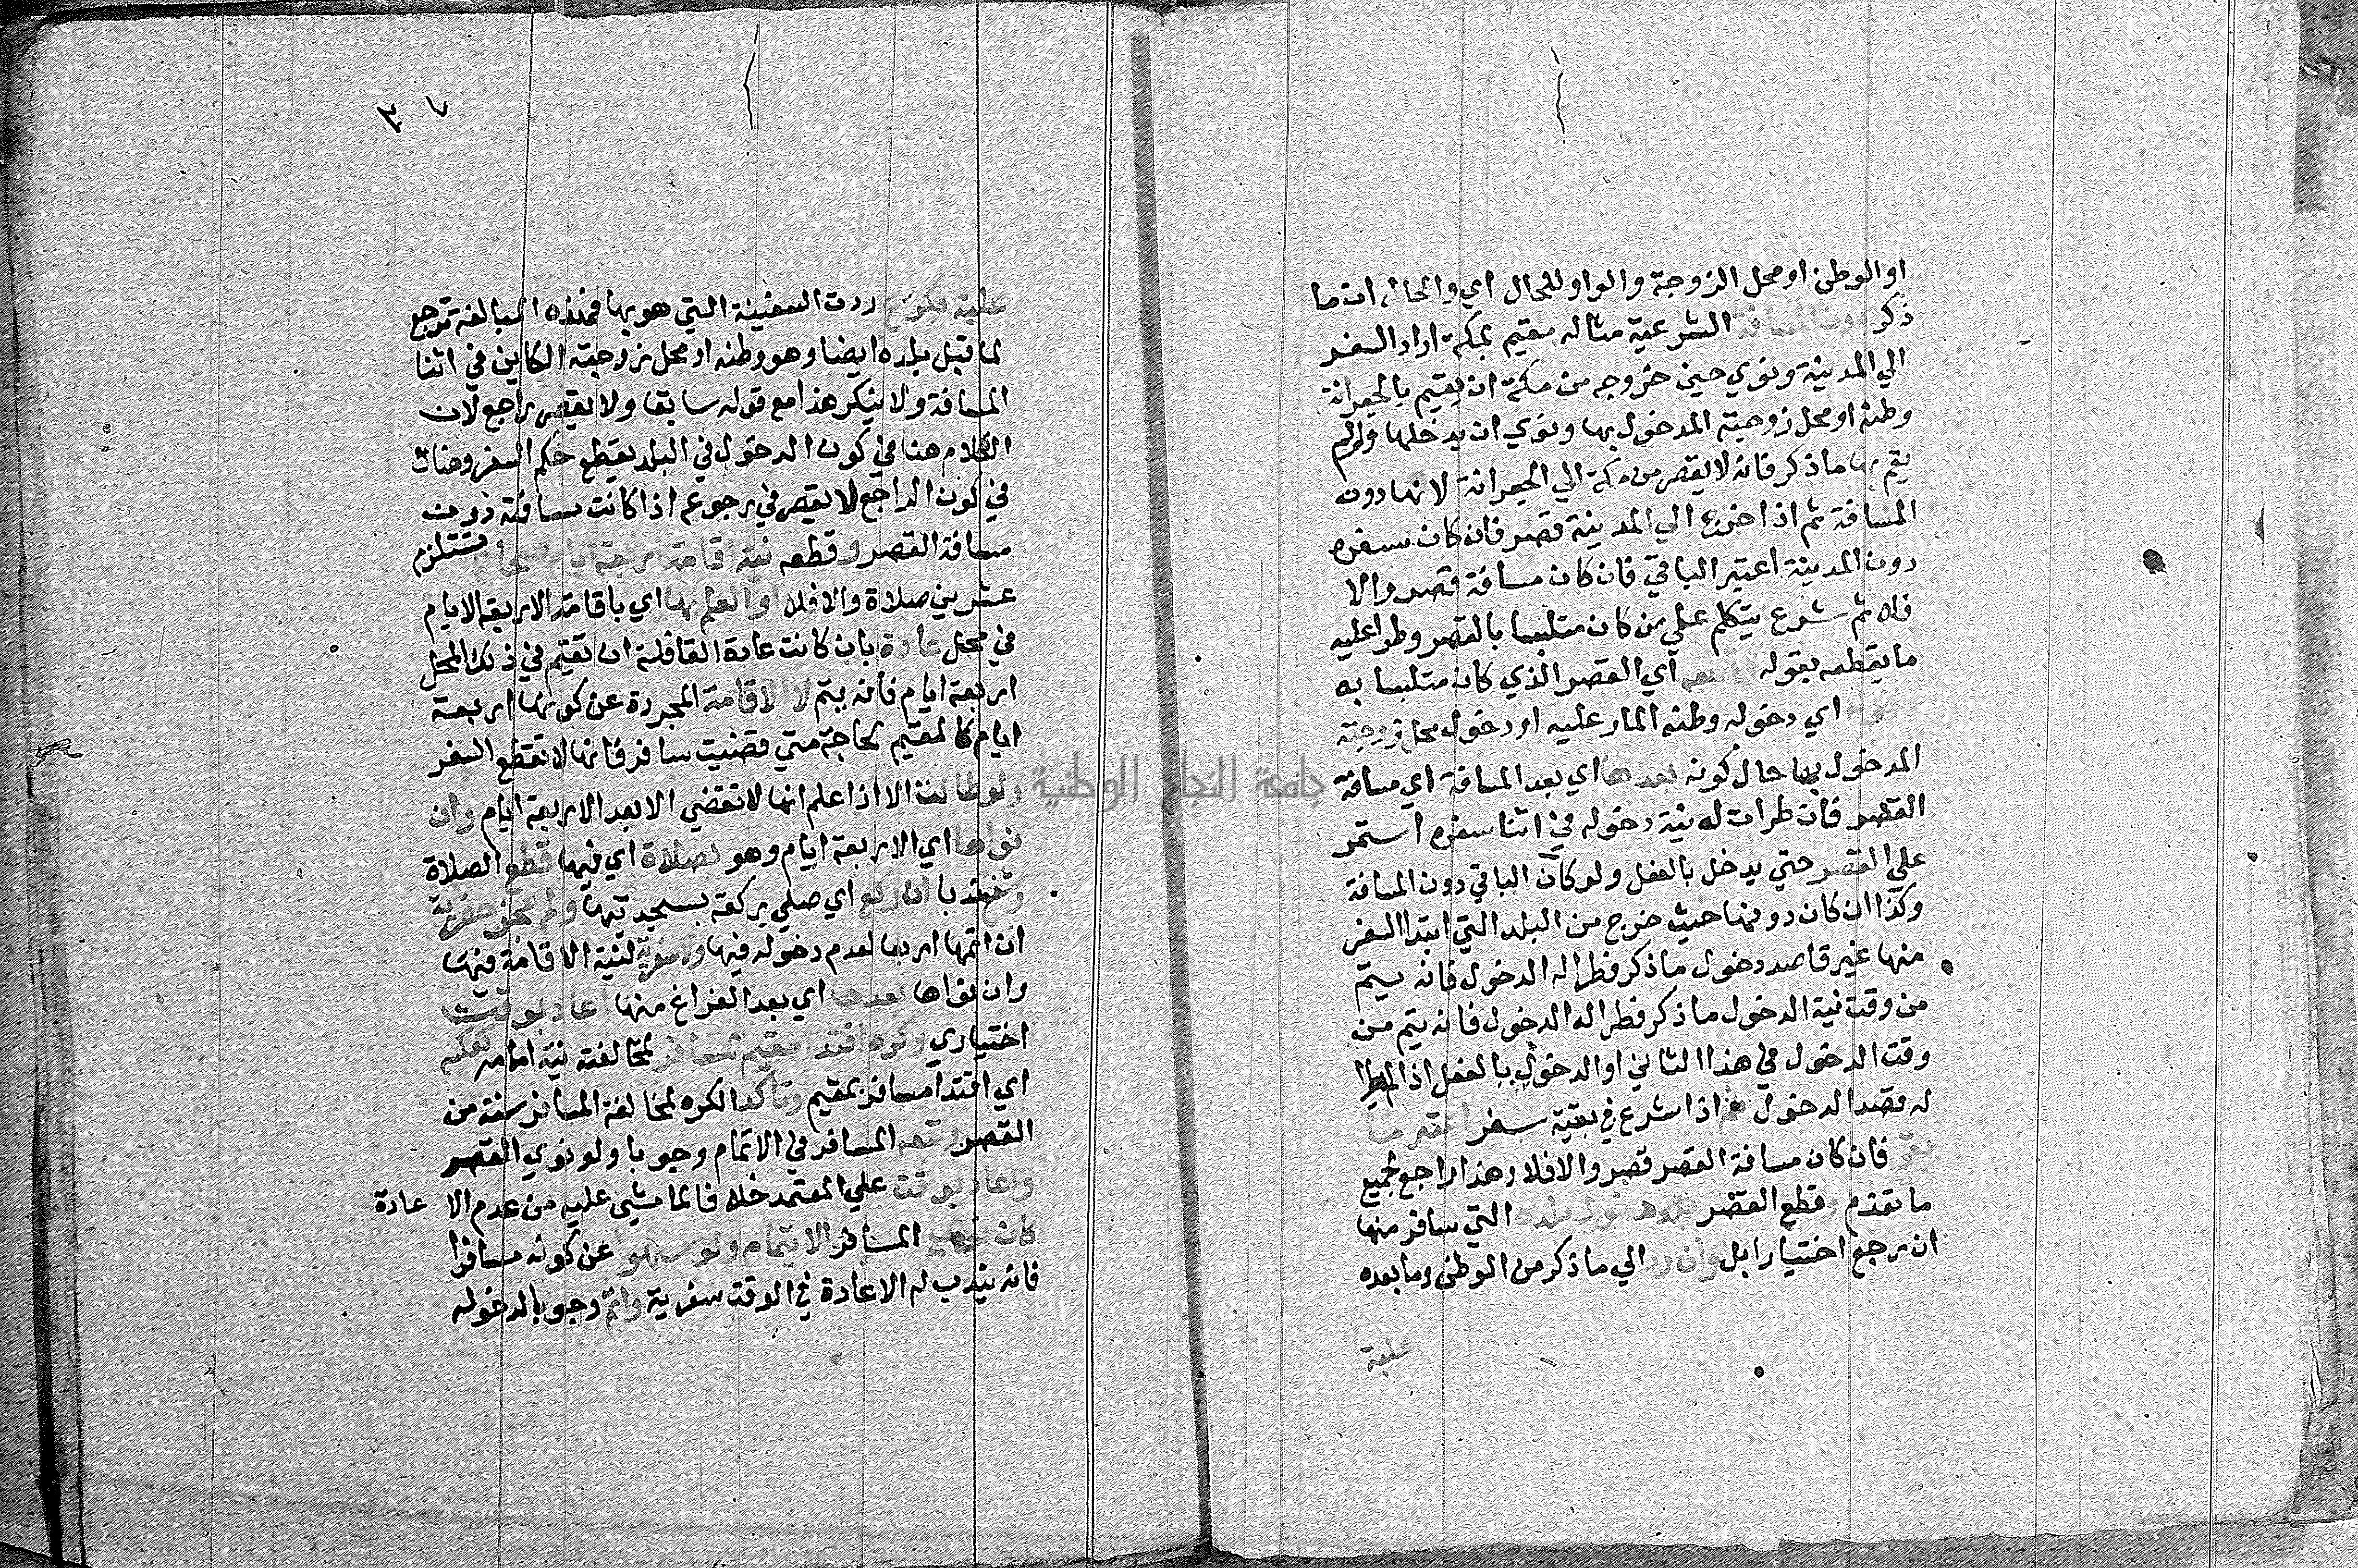 او الوطن او محل الزوجة والواو للحال اي والحال ان ما
ذكر دون المسافة الشرعية مثاله مقيم بمكة اراد السفر
الي المدينة ونوي حين خروجه من مكة ان يقيم بالجعرانة
وطنه او محل زوجته المدخول بها ونوي ان يدخلها ولو لم
يقم بها ما ذكر فانه لا يقصر من مكة الي الجعرانة لانها دون
المسافة ثم اذا خرج الي المدينة قصر فان كان سفره
دون المدينة اعتبر الباقي فان كان مسافة قصر والا
فلا ثم شرع يتكلم علي من كان متلبسا بالقصر وطرا عليه
ما يقطعه بقوله وقطعه اي القصر الذي كان متلبسا به
دخوله اي دخوله وطنه المار عليه او دخول محل زوجته
المدخول بها حال كونه بعدها اي بعد المسافة اي مسافة
القصر فان طرات له نية دخوله في اثنا سفره استمر
علي القصر حتي يدخل بالفعل ولو كان الباقي دون المسافة
وكذا ان كان دونها حيث خرج من البلد التي ابتدا السفر
منها غير قاصد دخول ما ذكر فطرا له الدخول فانه يتم
من وقت نية الدخول ما ذكر فطرا له الدخول فانه يتم من
وقت الدخول في هذا الثاني او الدخول بالفعل اذا لم يطرا
له قصد الدخول ثم اذا شرع في بقية سفر اعتبر ما
بقي فان كان مسافة القصر قصر والا فلا وهذا راجع لجميع
ما تقدم وقطع القصر دخول بلده التي سافر منها
ان رجع اختيارا بل وان رد الي ما ذكر من الوطن وما بعده
علية
٣٧
علية بكريح ردت السفينة التي هو بها فهذه المبالغة ترجع
لما قبل بلده ايضا وهو وطنه او محل زوجته الكاين في اثنا
المسافة ولا ينكر هذا مع قوله سابقا ولا يقصر راجع لان
الكلام هنا في كون الدخول في البلد يقطع حكم السفر وهناك
في كون الراجع لا يقصر في رجوعه اذا كانت مسافته دون
مسافة القصر وقطعه نية اقامة اربعة ايام صحاح تستلزم
عشرين صلاة والا فلا او العلم بها اي باقامة الاربعة الايام
في محل عادة بان كانت عادة القافلة ان تقيم في ذلك المحل
اربعة ايام فانه يتم لا الاقامة المجردة عن كونها اربعة
ايام كالمقيم لحاجة متي قضيت سافر فانها لا تقطع السفر
ولو طالت الا اذا علم انها لا تقضي الا بعد الاربعة ايام وان
نواها اي الاربعة ايام وهو بصلاة اي فيها قطع الصلاة
وشفع ندبا ان ركع اي صلي ركعة بسجدتيها ولم تجز حضرية
ان اتمها اربعا لعدم دخوله فيها ولا سفرية لنية الاقامة فيها
وان نواها بعدها اي بعد الفراغ منها اعاد بوقت
اختياري وكره اقتدا مقيم بمسافر لمخالفة نية امامه كعكسه
اي اقتدا مسافر بمقيم وتاكد الكره لمخالفة المسافر سنة من
القصر وتبعه المسافر في الاتمام وجوبا ولو نوي القصر
واعاد بوقت علي المعتمد خلافا لما مشي عليه من عدم الا عادة
كان نوي المسافر الاتمام ولو سهوا عن كونه مسافرا
فانه يندب له الاعادة في الوقت سفرية واتم وجوبا لدخوله
جامعة النجاح الوطنية